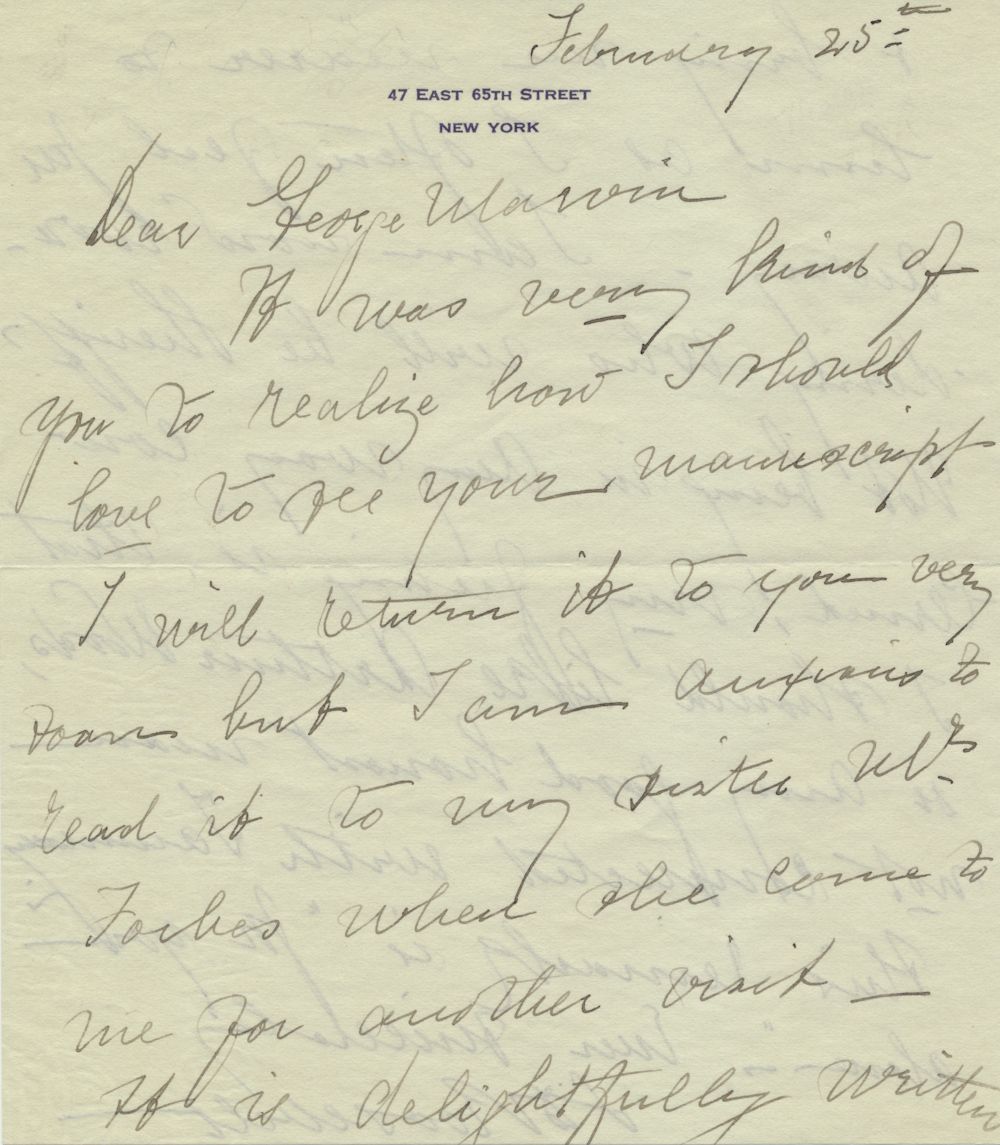 February 25th
47 EAST 65TH STREET
NEW YORK
Dear George Marvin
It was very kind of
you to realize how I should
love to see your manuscript
I will return it to you very
soon but I am anxious to
read it to my sister Mrs
Forbes when she come to
me for another visit —
It is delightfully written